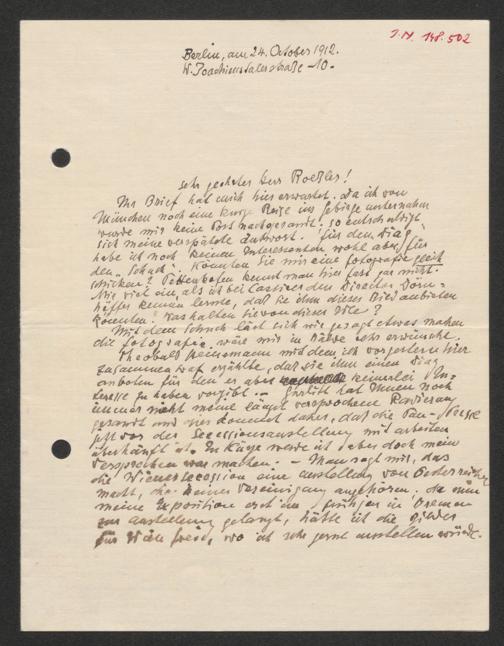 J.N. 148.502
Berlin, am 24. October 1912.
W. Joachimsthalerstraße -10-
Sehr geehrter Herr Roeßler!
Ihr Brief hat mich hier erwartet. Da ich von
München noch eine kurze Reise ins Gebirge unternahm
wurde mir keine Post nachgesandt. so entschuldigt
sich meine verspätete Antwort. Für den „Diaz"
habe ich noch keinen Interessenten wohl aber für
den „Schuch". Könnten Sie mir eine fotografie
schicken? Pettenkofen kennt man hier fast gar nicht.
Mir viel ein, als ich bei Cassirer den Director Dörn-
höffer kennen lernte, daß Sie ihm dieses Bild anbieten
könnten. Was halten Sie von dieser Idee?
Mit dem Schuch läßt sich wie gesagt etwas machen
die fotografie wäre mir in Bälde sehr erwünscht.
Theobald mit dem ich vorgestern hier
zusammentraf erzählte, daß Sie ihm einen Diaz
anboten für den er aber keinerlei In-
teresse zu haben vorgibt. - hat Ihnen noch
immer nicht meine längst versprochene Radierung
gesandt und dies kommt daher, daß die Pan-Presse
jetzt vor der Secessionsausstellung mit arbeiten
überhäuft ist. In Kürze werde ich aber doch mein
Versprechen war machen. - Man sagt mir, daß
die Wiener Secession eine ausstellung von Oesterreicher
macht, die keiner Vereinigung angehören. Da nun
meine Exposition erst im frühjar in Bremen
zur ausstellung gelangt, hätte ich die Bilder
für Wien frei, wo ich sehr gerne ausstellen würde.